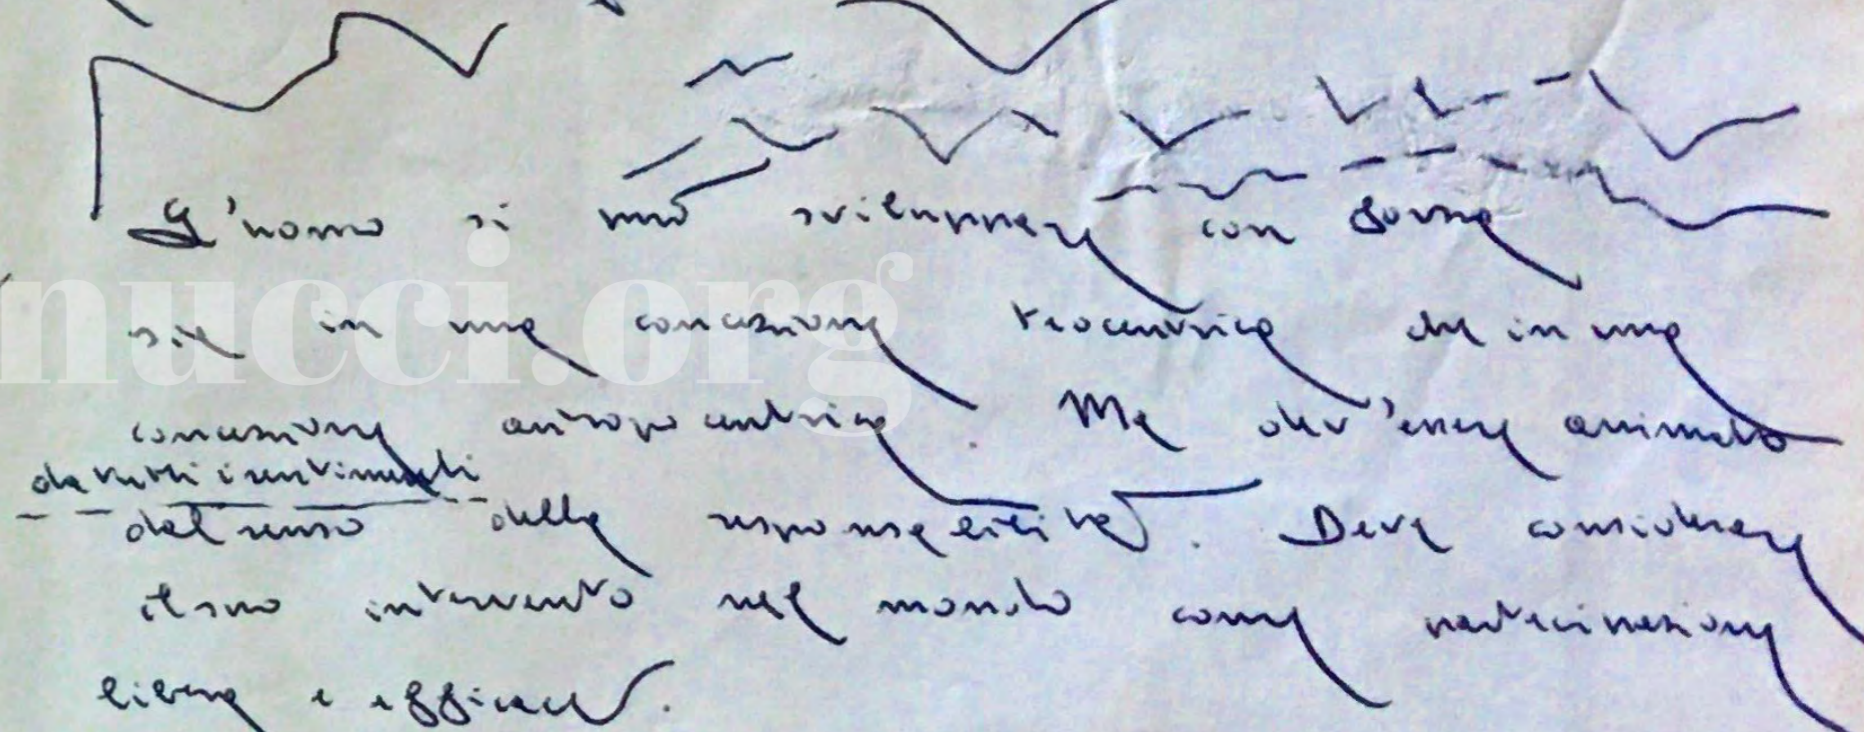 L'uomo si può sviluppare con forme
sia in una concezione teocentrica che in una
concezione antropocentrica. Ma dev'essere animato
da tutti i sentimenti
dal senso della responsabilità. Deve considerare
il suo intervento nel mondo come partecipazione
libera e efficace.
nucci.org